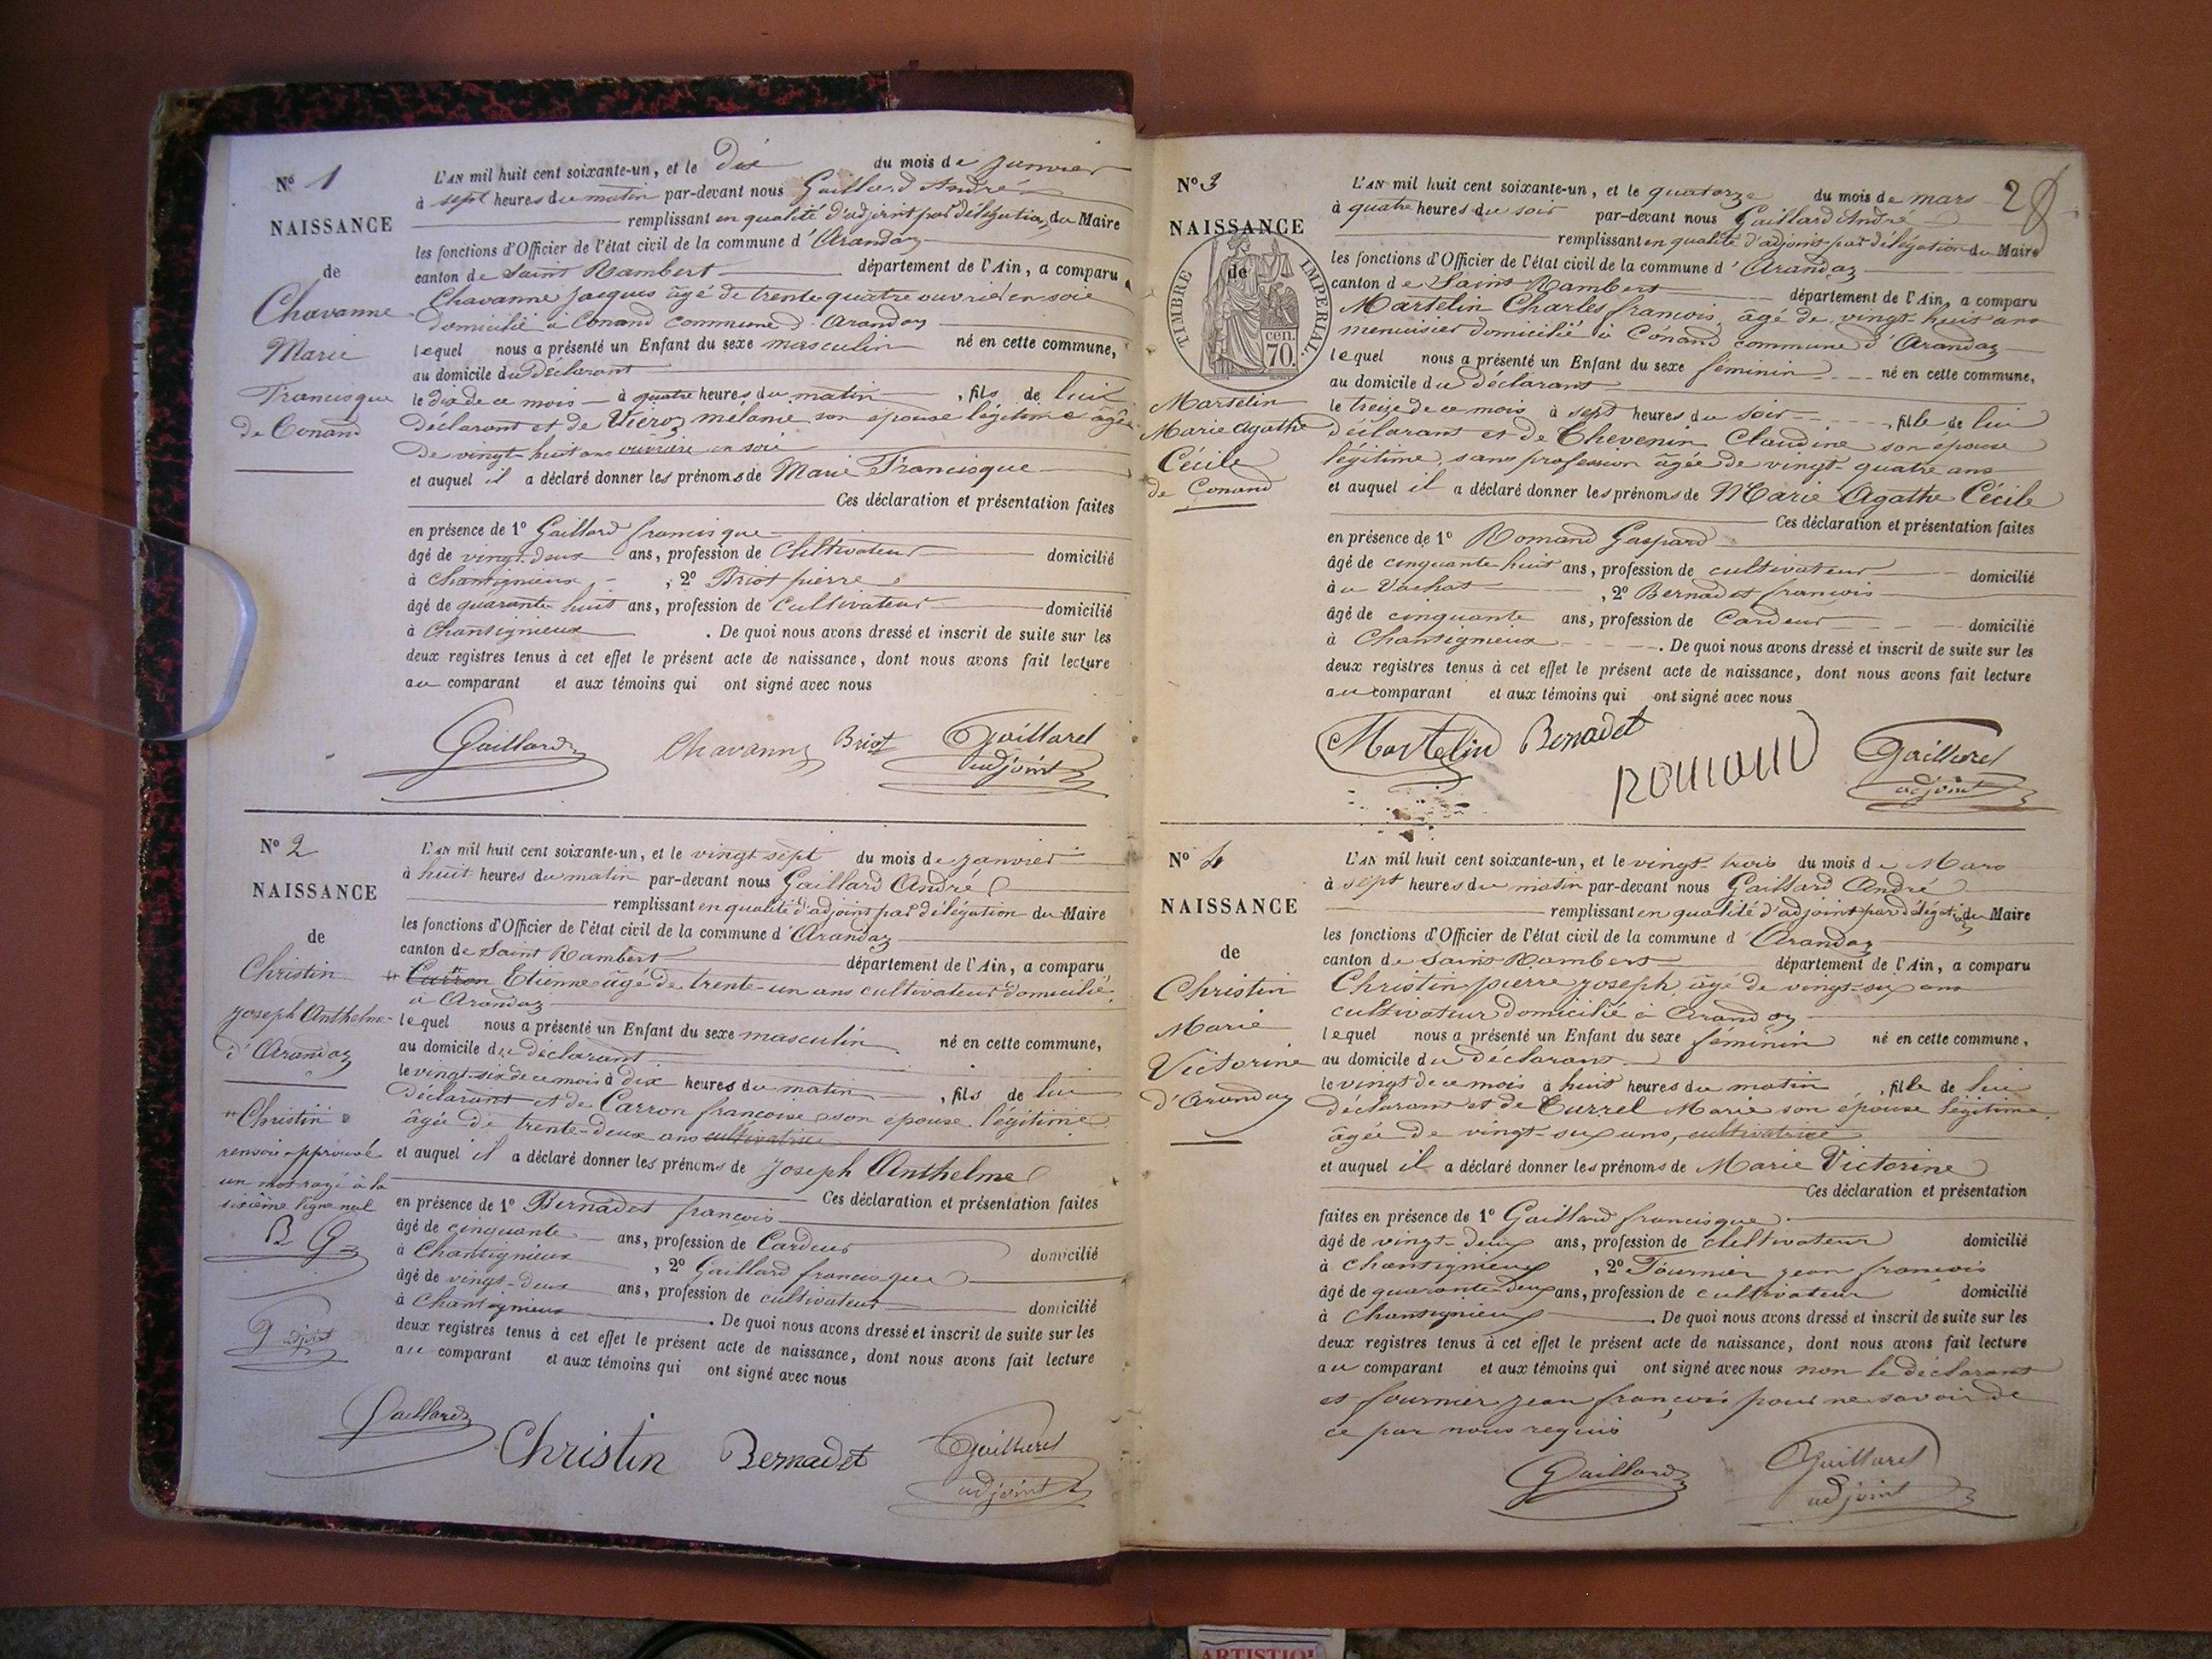 Nº 1
NAISSANCE
de
Chavanne
Marie
Francisque
de Conand
L'AN mil huit cent soixante-un, et le dix du mois de janvier
à sept heures du matin par-devant nous Gaillard André
remplissant en qualité d'adjoint par délégation du Maire
les fonctions d'Officier de l'état civil de la commune d'Arandaz
canton de Saint Rambert département de l'Ain, a comparu
Chavanne jacques âgé de trente quatre ouvrier en soie
domicilié à Conand commune d'Arandaz
lequel nous a présenté un Enfant du sexe masculin né en cette commune,
au domicile du Déclarant
le dix de ce mois à quatre heures du matin, fils de lui
déclarant et de mélanie son épouse légitime âgée
de vingt-huit ans ouvrière en soie
et auquel il a déclaré donner les prénoms de Marie Francisque
Ces déclaration et présentation faites
en présence de 1º Gaillard francisque
âgé de vingt-deux ans, profession de Cultivateur domicilié
à Chantignieux, 2º Briot pierre
âgé de quarante-huit ans, profession de Cultivateur domicilié
à Chantignieux. De quoi nous avons dressé et inscrit de suite sur les
deux registres tenus à cet effet le présent acte de naissance, dont nous avons fait lecture
au comparant et aux témoins qui ont signé avec nous
Gaillard Chavanne Briot Gaillard
adjoint
Nº 2
NAISSANCE
de
Christin
joseph Anthelme
d'Arandaz
" Christin
renvoi approuvé
un mot rayé à la
sixième ligne nul
B G
G adjoint
L'AN mil huit cent soixante-un, et le vingt sept du mois de janvier
à huit heures du matin par-devant nous Gaillard André
remplissant en qualité d'adjoint par délégation du Maire
les fonctions d'Officier de l'état civil de la commune d'Arandaz
canton de Saint Rambert département de l'Ain, a comparu
" Carron Etienne âgé de trente-un ans cultivateur domicilié
à Arandaz
lequel nous a présenté un Enfant du sexe masculin né en cette commune,
au domicile du déclarant
le vingt-six de ce mois à dix heures du matin, fils de lui
déclarant et de Carron françoise son épouse légitime
âgée de trente-deux ans cultivatrice
et auquel il a déclaré donner les prénoms de joseph Anthelme
Ces déclaration et présentation faites
en présence de 1º Bernadet françois
âgé de cinquante ans, profession de Cardeur domicilié
à Chantignieux, 2º Gaillard francisque
âgé de vingt-deux ans, profession de cultivateur domicilié
à Chantignieux. De quoi nous avons dressé et inscrit de suite sur les
deux registres tenus à cet effet le présent acte de naissance, dont nous avons fait lecture
au comparant et aux témoins qui ont signé avec nous
Gaillard Christin Bernadet Gaillard
adjoint
2
Nº 3
NAISSANCE
de
TIMBRE IMPERIAL
70 cen.
Martelin
Marie Agathe
Cécile
de Conand
L'AN mil huit cent soixante-un, et le quatorze du mois de mars
à quatre heures du soir par-devant nous Gaillard André
remplissant en qualité d'adjoint par délégation du Maire
les fonctions d'Officier de l'état civil de la commune d'Arandaz
canton de Saint Rambert département de l'Ain, a comparu
Martelin Charles françois, âgé de vingt-huit ans
menuisier domicilié à Conand commune d'Arandaz
lequel nous a présenté un Enfant du sexe féminin né en cette commune,
au domicile du déclarant
le treize de ce mois à sept heures du soir, fille de lui
déclarant et de Thevenin Claudine son épouse
légitime, sans profession âgée de vingt-quatre ans
et auquel il a déclaré donner les prénoms de Marie Agathe Cécile
Ces déclaration et présentation faites
en présence de 1º Romand Gaspard
âgé de cinquante-huit ans, profession de cultivateur domicilié
à u Vachat, 2º Bernadet françois
âgé de cinquante ans, profession de Cardeur domicilié
à Chantignieux. De quoi nous avons dressé et inscrit de suite sur les
deux registres tenus à cet effet le présent acte de naissance, dont nous avons fait lecture
au comparant et aux témoins qui ont signé avec nous
Martelin Bernadet
Romand Gaillard
adjoint
Nº 4
NAISSANCE
de
Christin
Marie
Victorine
d'Arandaz
L'AN mil huit cent soixante-un, et le vingt-trois du mois de Mars
à sept heures du matin par-devant nous Gaillard André
remplissant en qualité d'adjoint par délégation du Maire
les fonctions d'Officier de l'état civil de la commune d'Arandaz
canton de Saint Rambert département de l'Ain, a comparu
Christin pierre joseph, âgé de vingt-six ans
cultivateur domicilié à Arandaz
lequel nous a présenté un Enfant du sexe féminin né en cette commune,
au domicile du déclarant
le vingt de ce mois à huit heures du matin, fille de lui
déclarant et de Currel Marie son épouse légitime,
âgée de vingt-six ans, cultivatrice
et auquel il a déclaré donner les prénoms de Marie Victorine
Ces déclaration et présentation
faites en présence de 1º Gaillard francisque
âgé de vingt-deux ans, profession de Cultivateur domicilié
à Chantignieux, 2º Fournier jean françois
âgé de quarante-deux ans, profession de cultivateur domicilié
à Chantignieux. De quoi nous avons dressé et inscrit de suite sur les
deux registres tenus à cet effet le présent acte de naissance, dont nous avons fait lecture
au comparant et aux témoins qui ont signé avec nous non le déclarant
et fournier jean françois pour ne savoir de
ce par nous requis
Gaillard Gaillard
adjoint